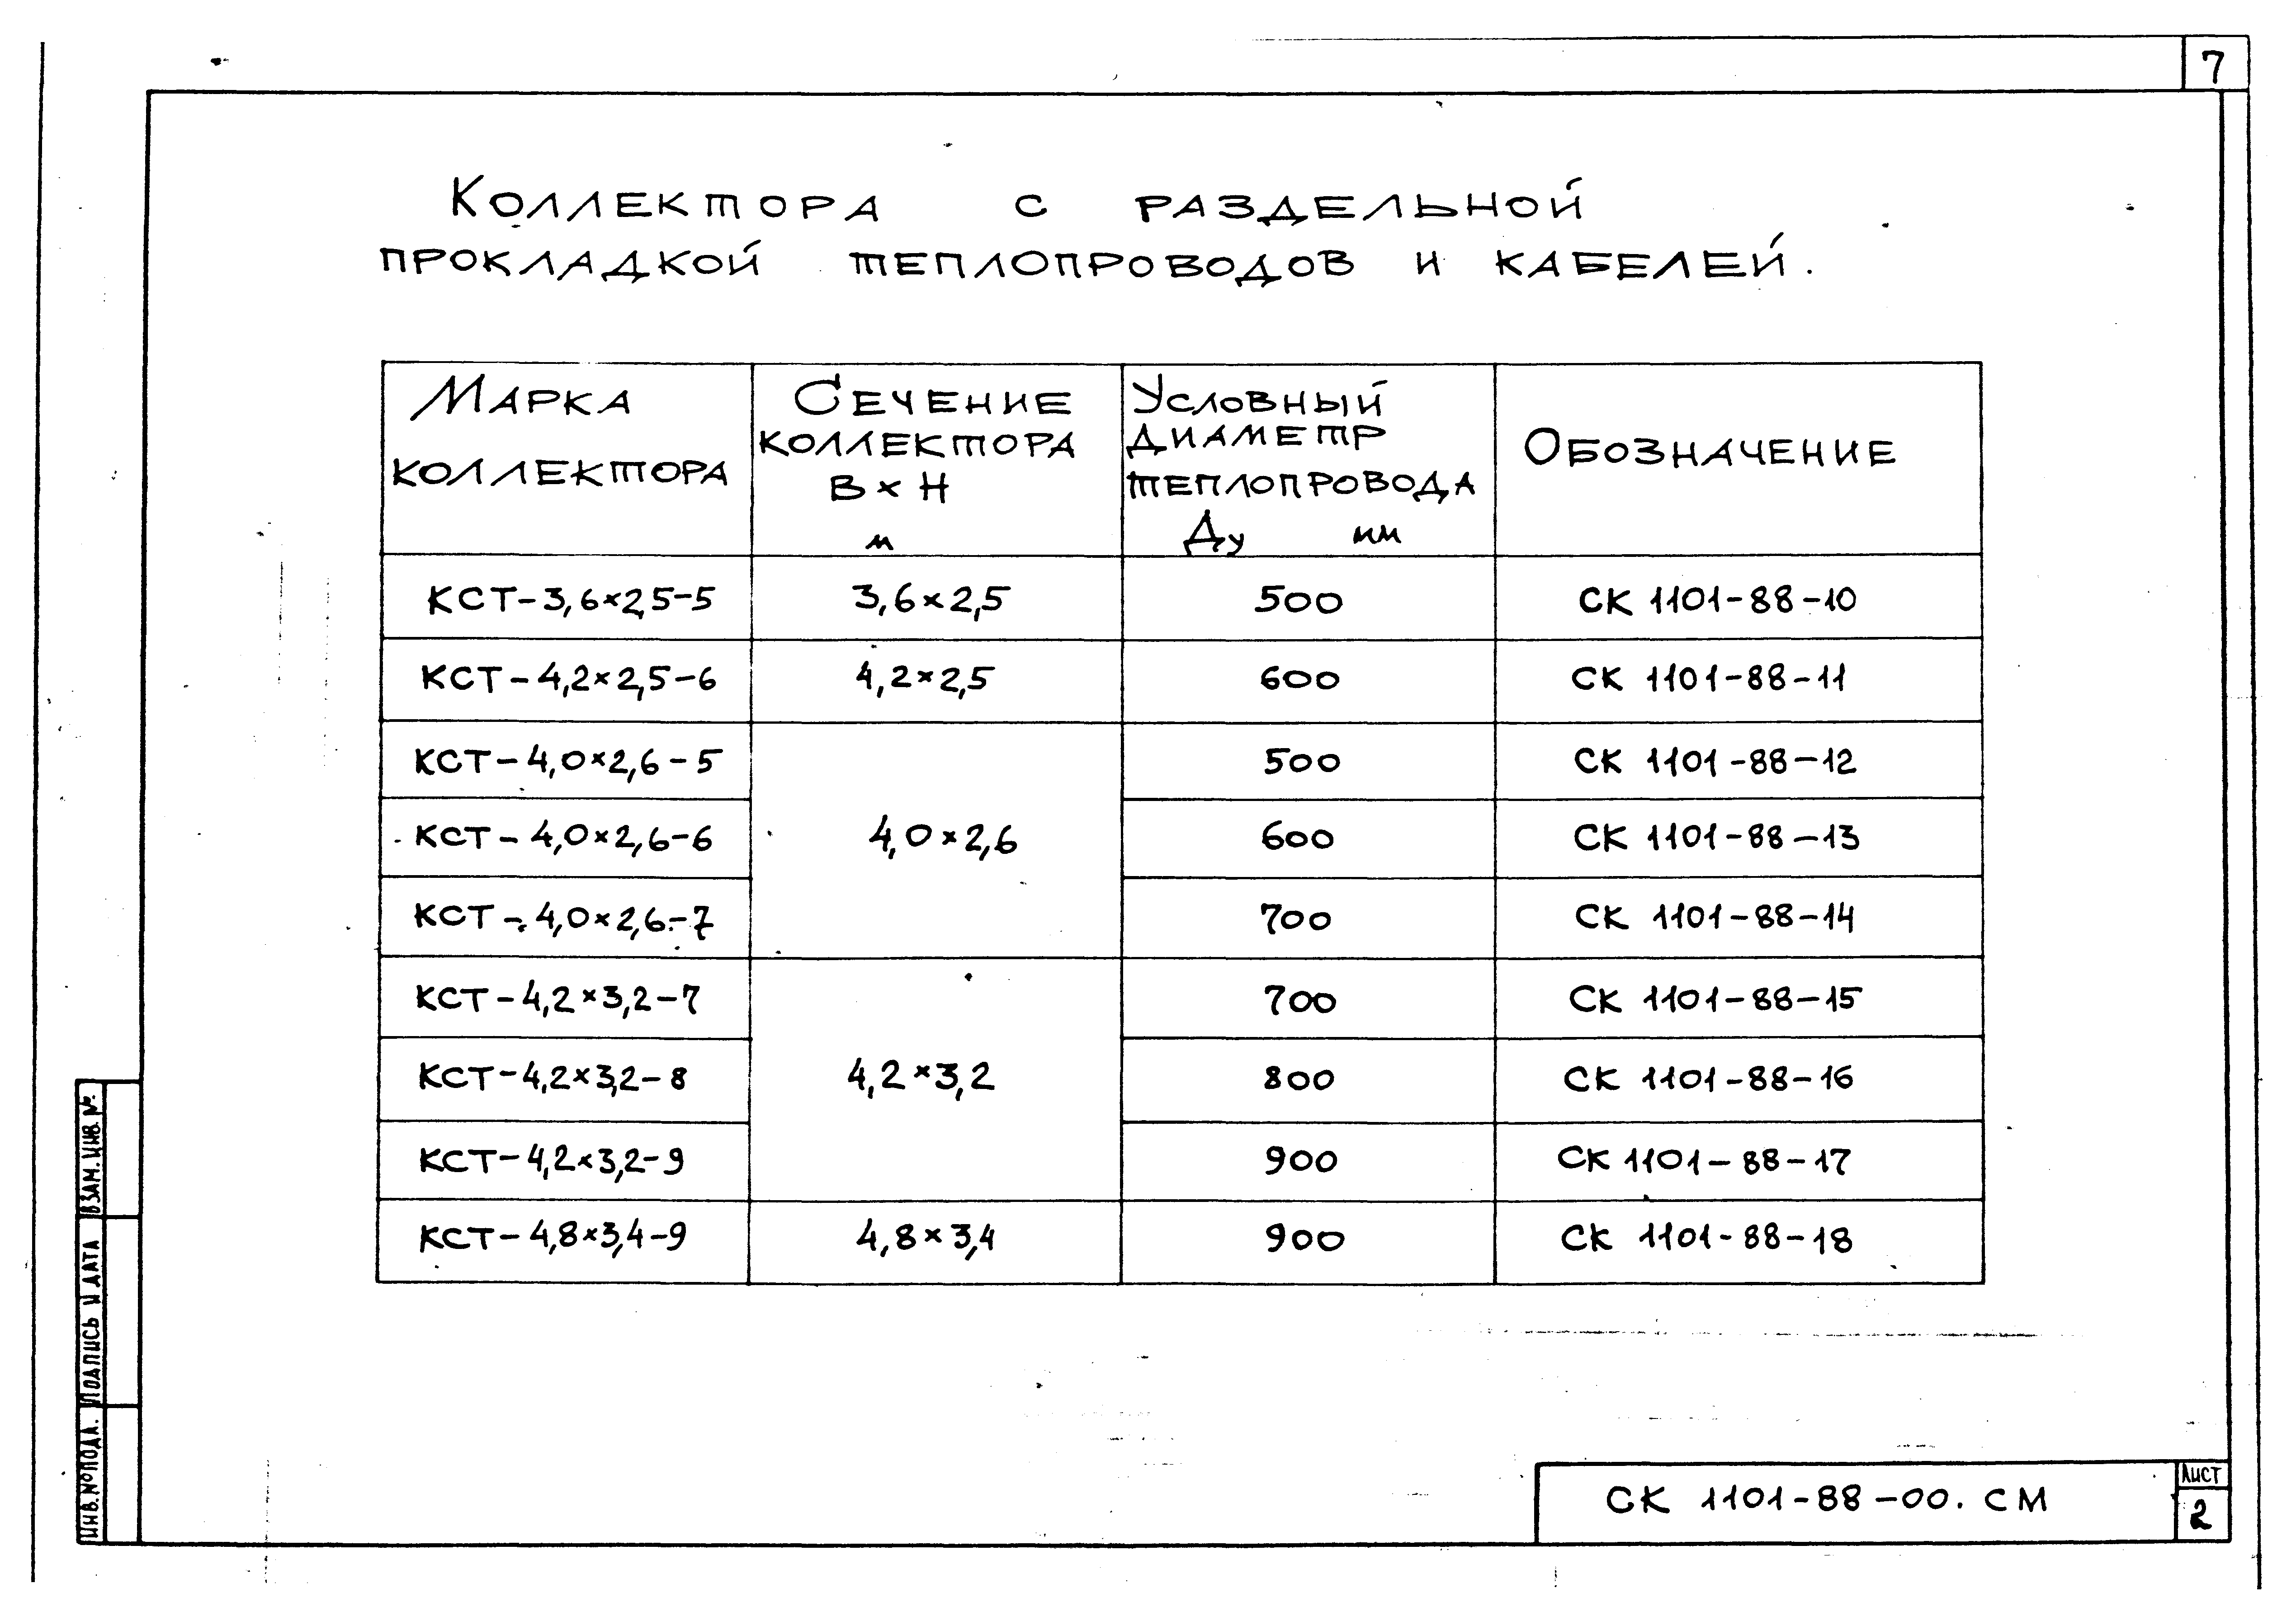 7
Коллектора с раздельной
прокладкой теплопроводов и кабелей.
Марка
коллектора
Сечение
коллектора
В×Н
м
Условный
диаметр
теплопровода
Ду мм
Обозначение
КСТ-3,6×2,5-5 3,6×2,5 500 СК 1101-88-10
КСТ-4,2×2,5-6 4,2×2,5 600 СК 1101-88-11
КСТ-4,0×2,6-5 500 СК 1101-88-12
КСТ-4,0×2,6-6 4,0×2,6 600 СК 1101-88-13
КСТ-4,0×2,6-7 700 СК 1101-88-14
КСТ-4,2×3,2-7 700 СК 1101-88-15
КСТ-4,2×3,2-8 4,2×3,2 800 СК 1101-88-16
КСТ-4,2×3,2-9 900 СК 1101-88-17
КСТ-4,8×3,4-9 4,8×3,4 900 СК 1101-88-18
Взам. инв. №
Подпись и дата
Инв. № подл.
СК 1101-88-00. СМ
Лист
2